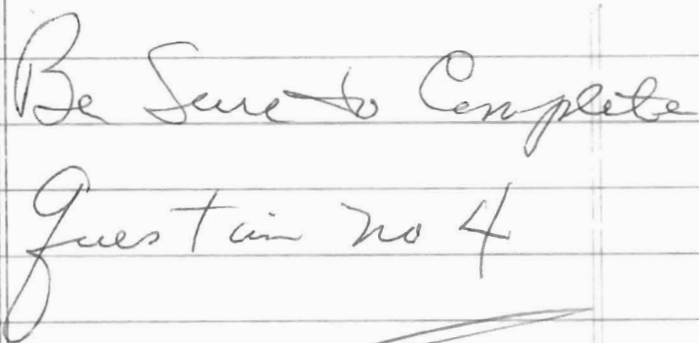 Be Sure to Complete
Question no 4